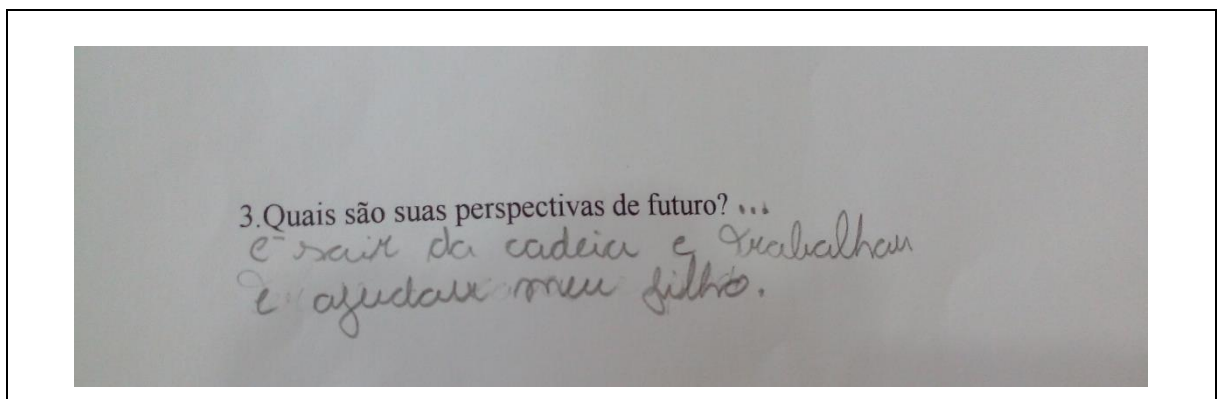 3.Quais são suas perspectivas de futuro? ...
é sair da cadeia e trabalhar
e ajudar meu filho.